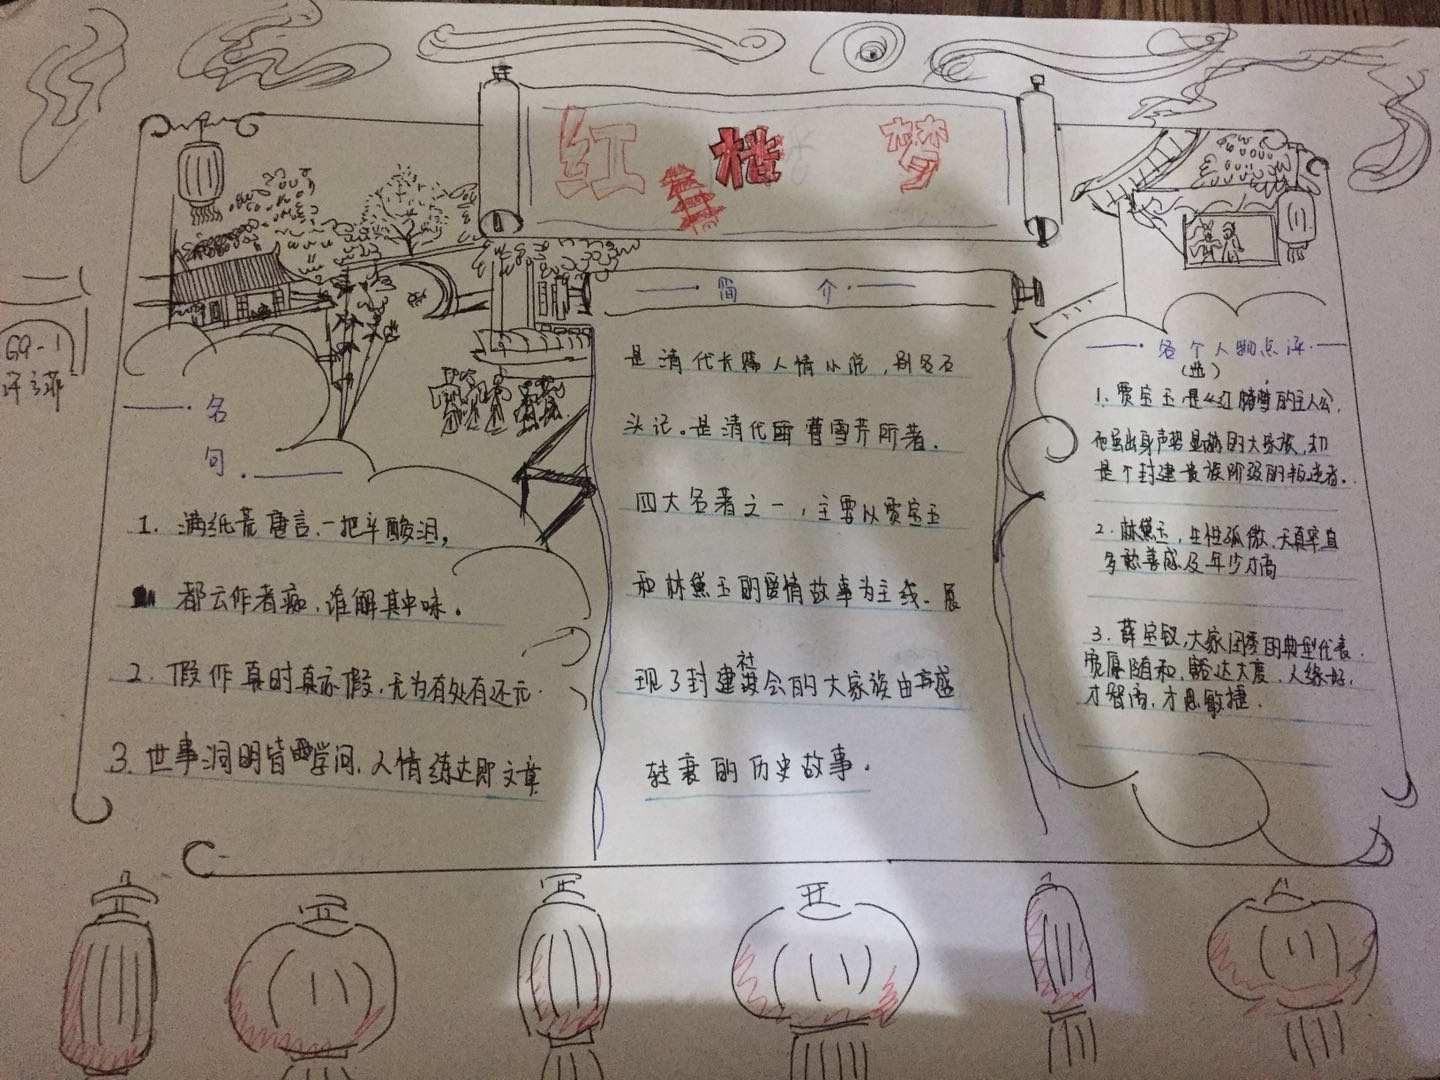 红楼梦
G9-1
名
句
1. 满纸荒唐言,一把辛酸泪,
都云作者痴,谁解其中味。
2. 假作真时真亦假,无为有处有还无.
3. 世事洞明皆学问,人情练达即文章
简 介
是清代长篇人情小说,别名石
头记。是清代曹雪芹所著.
四大名著之一,主要以贾宝玉
和林黛玉的爱情故事为主线.展
现了封建社会的大家族由盛
转衰的历史故事.
各个人物点评
1. 贾宝玉是《红楼梦》的主人公.
而虽出身声势显赫的大家族,却
是个封建贵族阶级的叛逆者.
2. 林黛玉,生性孤傲,天真率直
多愁善感及年少才高
3. 薛宝钗,大家闺秀的典型代表.
宽厚随和,豁达大度.人缘好,
才智高,才思敏捷.